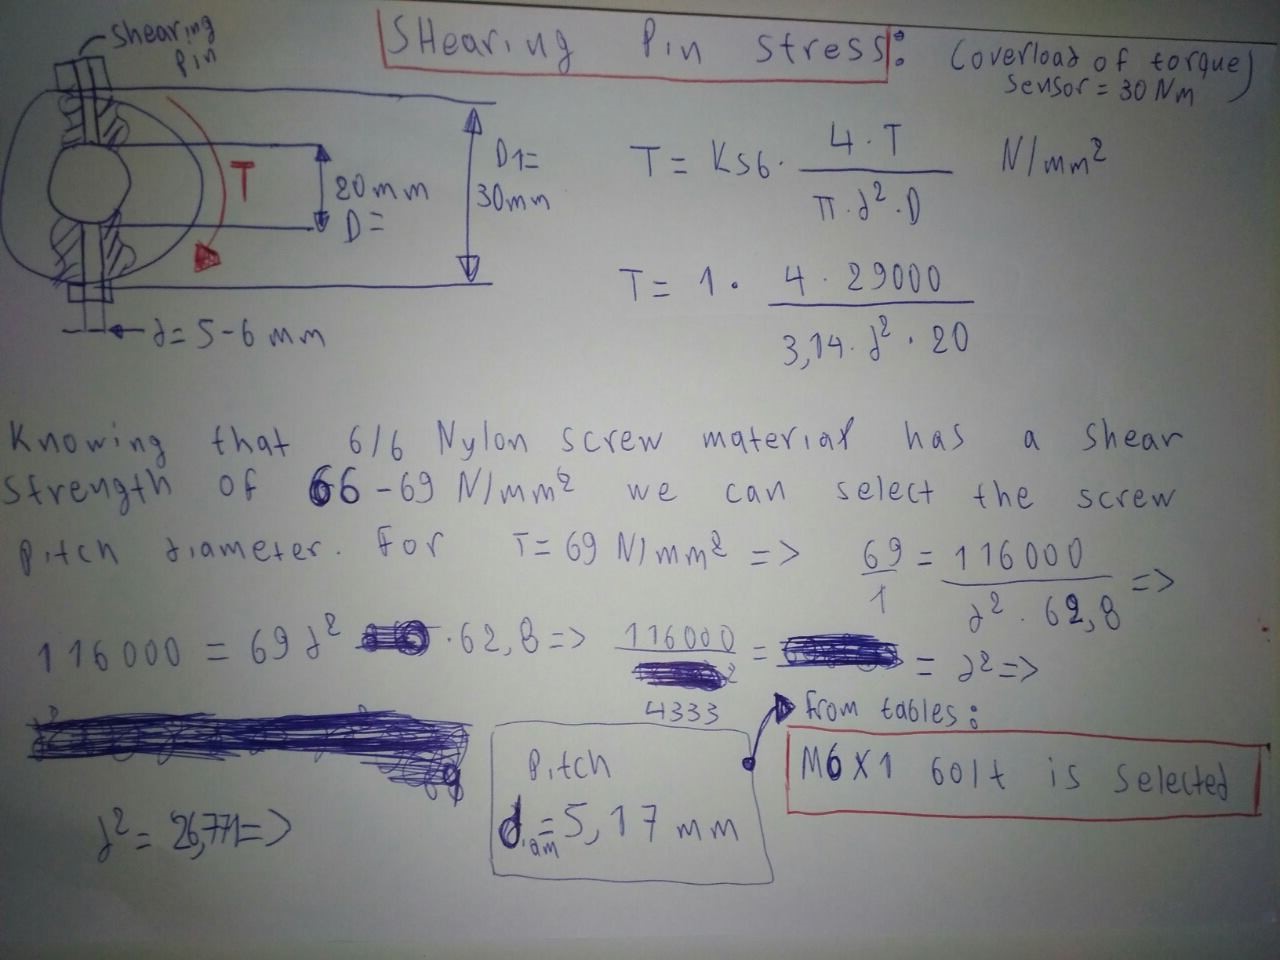 shearing
pin
SHearing Pin stress: (overload of torque)
sensor = 30 Nm
T
20mm
D=
D1=
30mm
d= 5-6 mm
T= Ksb · 4·T / π·d²·D N/mm²
T= 1 · 4·29000 / 3,14·d²·20
Knowing that 6/6 Nylon screw material has a shear
strength of 66-69 N/mm² we can select the screw
pitch diameter. For T=69 N/mm² => 69/1 = 116000 / d²·62,8 =>
116000 = 69d² ·62,8 => 116000 / 4333 = d² =>
d² = 26,771=>
Pitch
diam=5,17 mm
From tables:
M6x1 bolt is selected